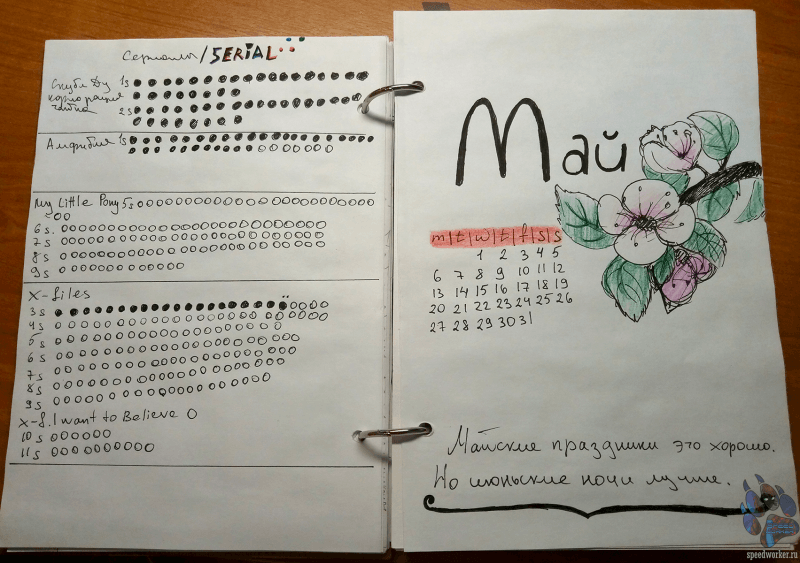 Сериалы/SERIAL
Скуби Ду 1s
корпорация
тайна 2s
Амфибия 1s
My Little Pony 5s
6s.
7s
8s
9s
X-files
3s
4s
5s
6s
7s
8s
9s
X-f. I want to Believe
10s
11s
Май
m|t|w|t|f|s|s
1 2 3 4 5
6 7 8 9 10 11 12
13 14 15 16 17 18 19
20 21 22 23 24 25 26
27 28 29 30 31
Майские праздники это хорошо.
Но июньские ночи лучше.
speedworker.ru